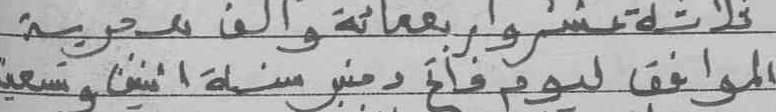 ثلاثة عشر واربعمائة والف هجرية
الموافق ليوم فاتح دجنبر سنة اثنين وتسعين